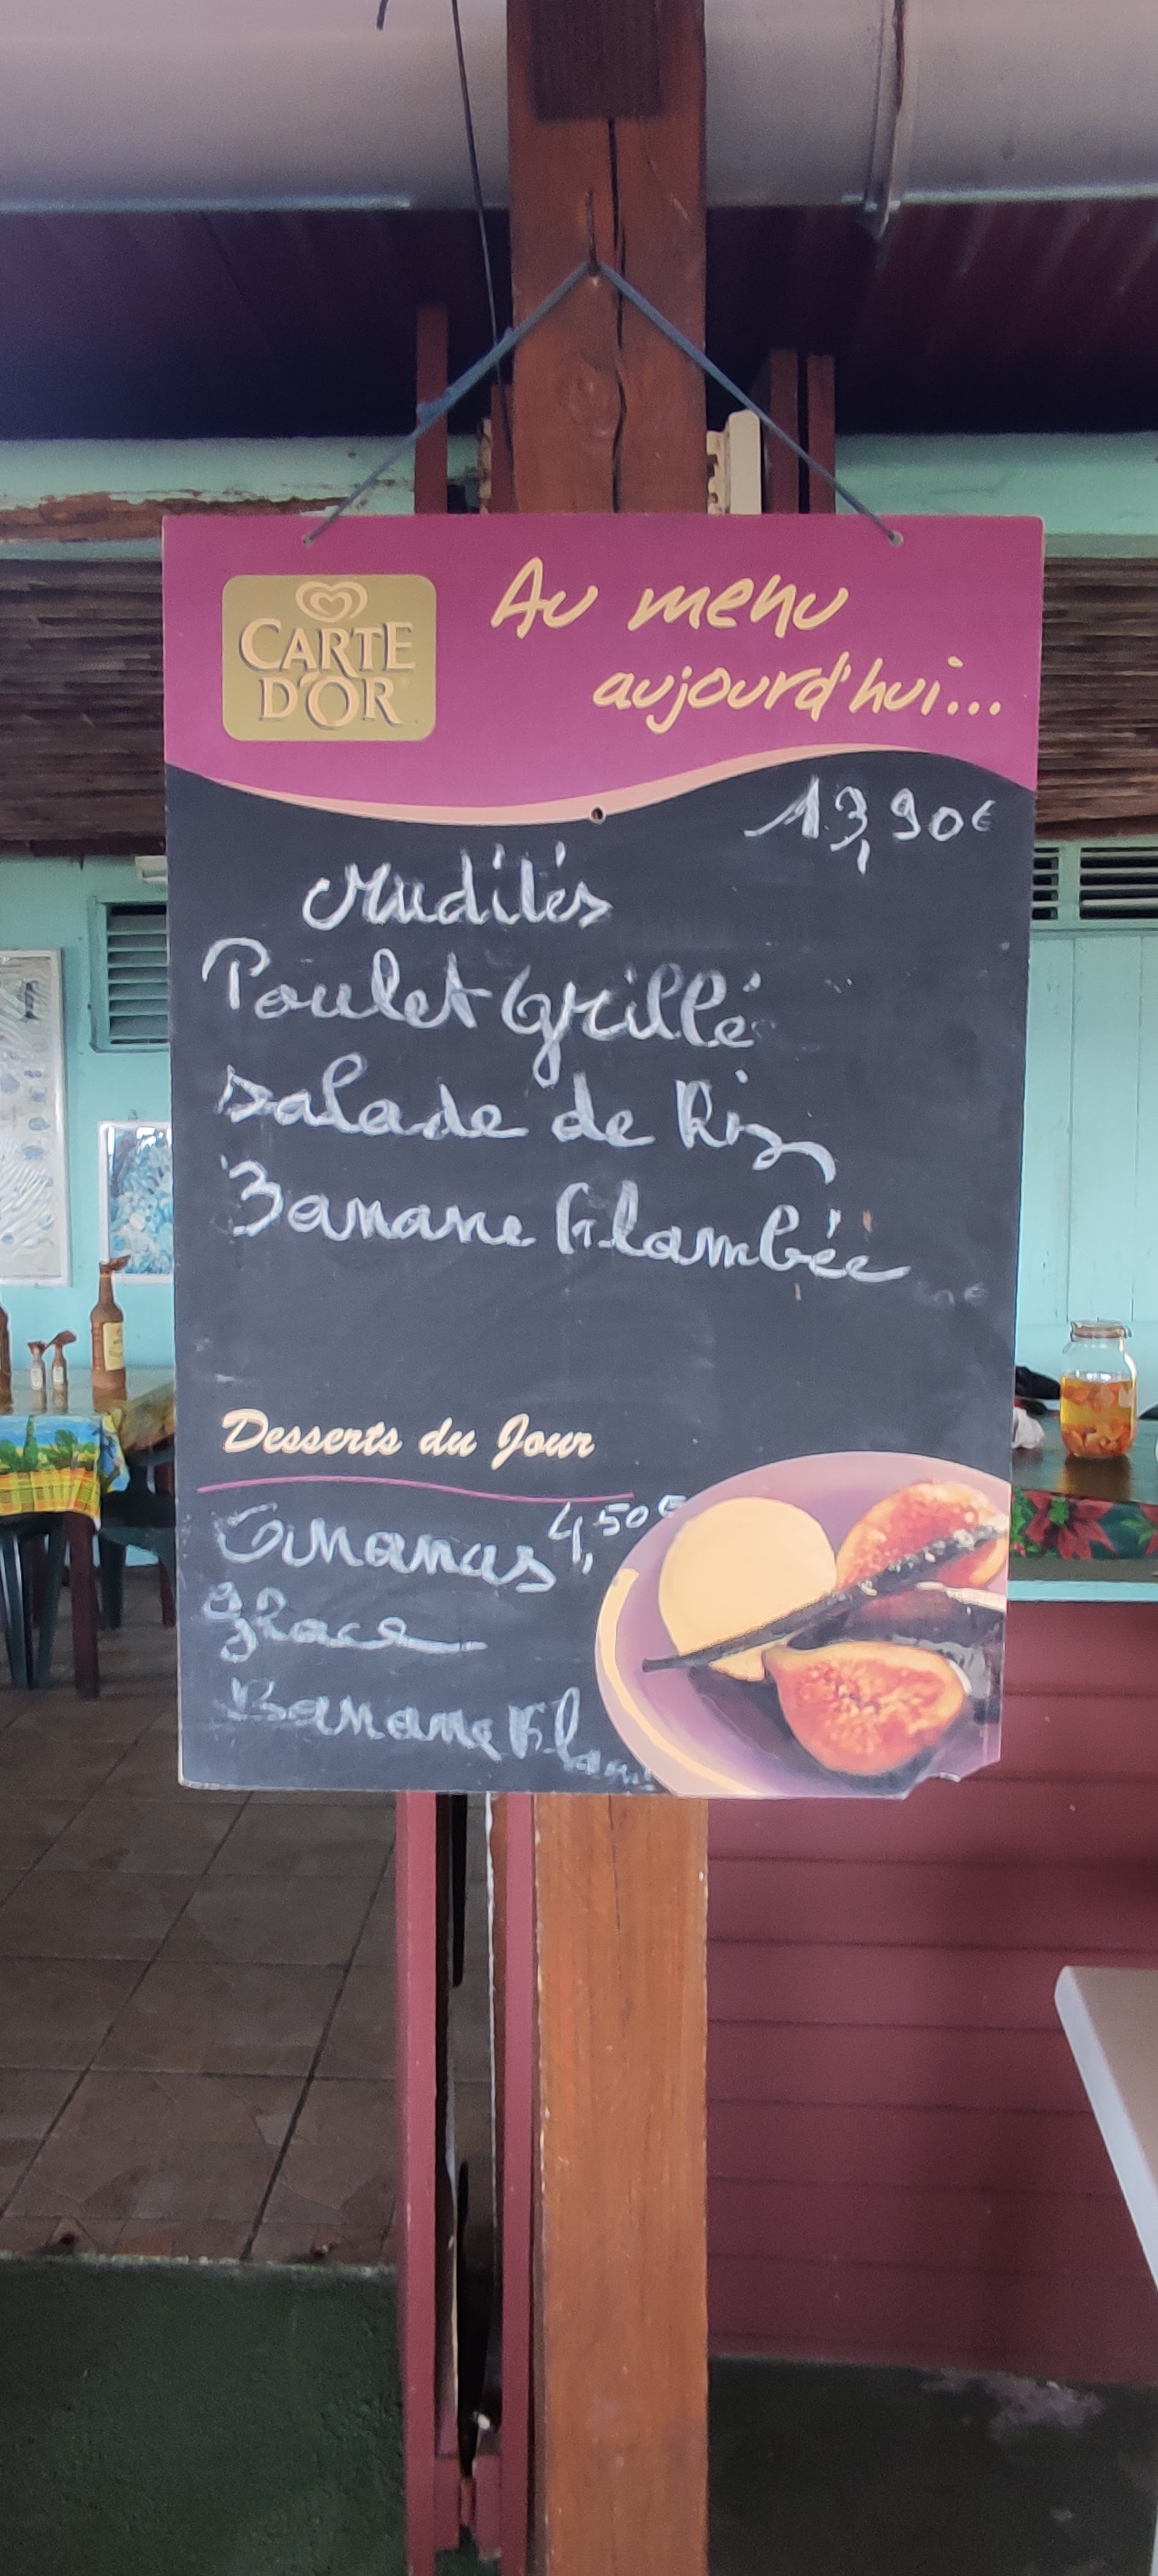 CARTE
D'OR
Au menu
aujourd'hui...
13,90€
Poulet Grillé
salade de Riz
Banane Flambée
Desserts du Jour
Ananas 4,50€
glace
Banane Flam